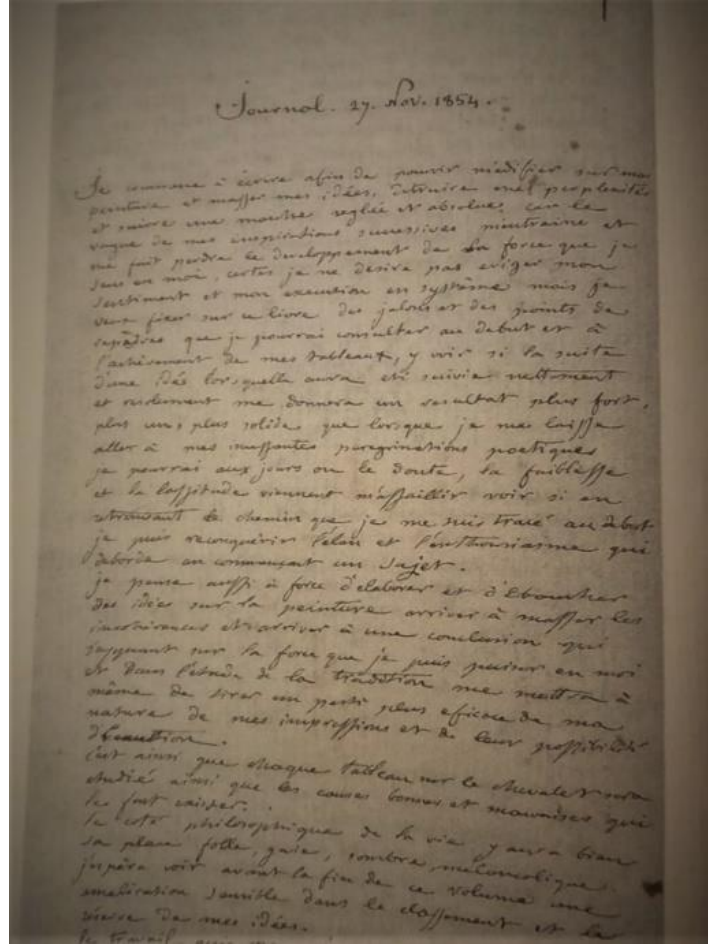 Journal. 27. Nov. 1854.
Je commence à écrire afin de pouvoir méditer sur ma
peinture et masser mes idées, détruire mes perplexités
et suivre une marche reglée et absolue, car le
vague de mes inspirations successives m'entraine et
me fait perdre le developpement de la force que je
sens en moi, certes je ne desire pas eriger mon
sentiment et mon execution en système mais je
veux fixer sur ce livre des jalons et des points de
repères que je pourrai consulter au debut et à
l'achèvement de mes tableaux, y voir si la suite
d'une idée lorsquelle aura eté suivie nettement
et rudement me donnera un resultat plus fort,
plus un, plus solide que lorsque je me laisse
aller à mes peregrinations poetiques
je pourrai aux jours ou le doute, la faiblesse
et la lassitude viennent m'assaillir voir si en
retrouvant le chemin que je me suis tracé au debut
je puis reconquérir l'élan et l'enthousiasme qui
deborde en commençant un sujet.
je pense aussi à force d'elaborer et d'ébaucher
des idées sur la peinture arriver à masser les
incohérences et arriver à une conclusion qui
s'appuant sur la force que je puis puiser en moi
et dans l'étude de la tradition me mettra à
même de tirer un parti plus eficace de ma
nature de mes impressions et de leur possibilité
d'execution.
c'est ainsi que chaque tableau sur le chevalet sera
etudié ainsi que les causes bonnes et mauvaises qui
le font exister.
le coté philosophique de la vie y aura bien
sa place folle, gaie, sombre, melancolique.
j'espère voir avant la fin de ce volume une
amelioration sensible dans le classement et la
de mes idées.
le travail